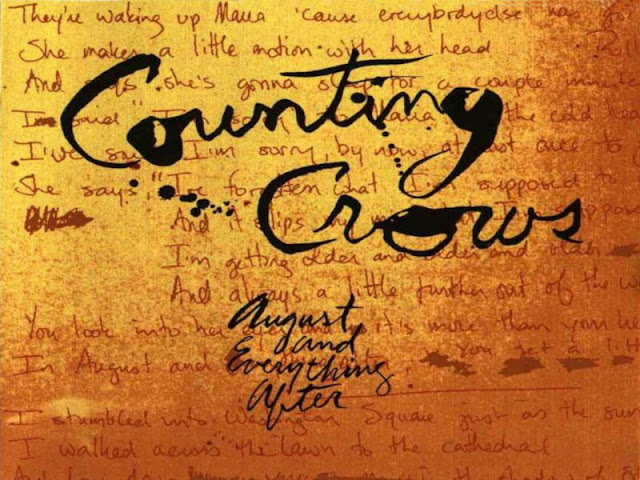 They're waking up Maria 'cause everybody else has
She makes a little motion with her head
And says she's gonna sleep for a couple minutes
Counting
I said I'm sorry Maria the cold
I've said I'm sorry by now, at least once to
She says, "I've forgotten what I'm supposed to
Crows
And it slips my
I'm getting older and older and older
And always a little further out of the
August
and
Everything
After
You look into her it's more than your
In August and
You get a
I stumbled into Washington Square just as the sun
I walked across the lawn to the cathedral